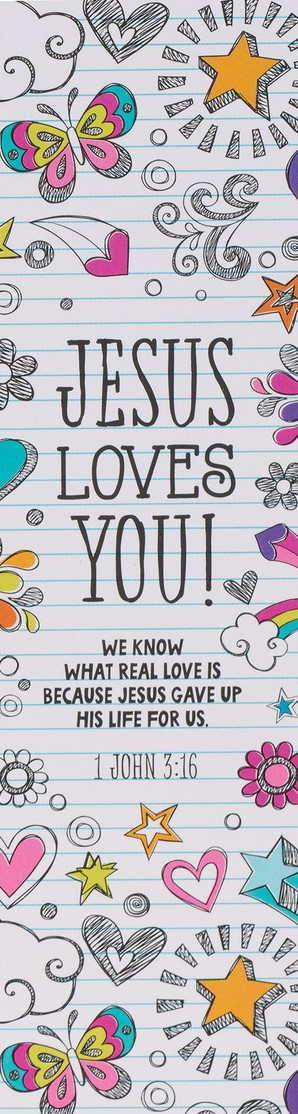 JESUS
LOVES
YOU!
WE KNOW
WHAT REAL LOVE IS
BECAUSE JESUS GAVE UP
HIS LIFE FOR US.
1 JOHN 3:16